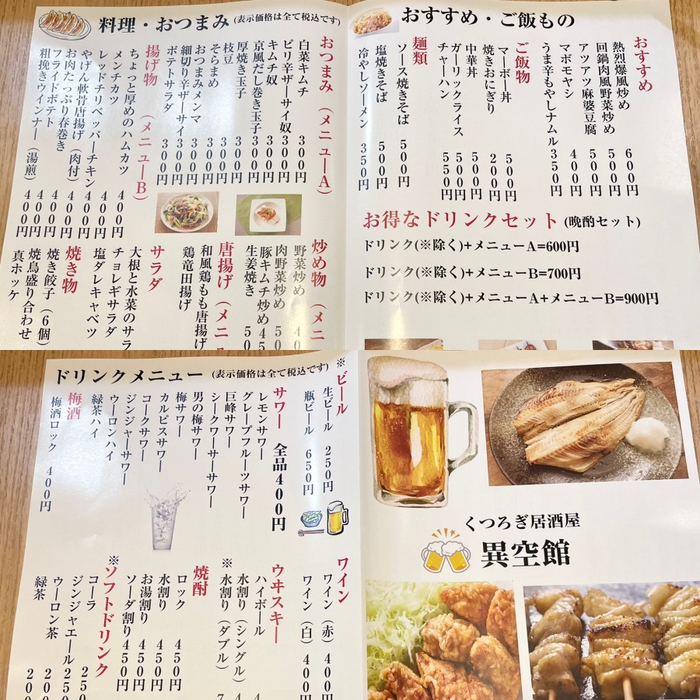 料理・おつまみ(表示価格は全て税込です)
おつまみ(メニューA)
白菜キムチ 300円
ピリ辛ザーサイ奴 300円
キムチ奴 300円
京風だし巻き玉子 300円
厚焼き玉子 300円
枝豆 300円
そらまめ 300円
おつまみメンマ 300円
細切り辛ザーサイ 300円
ポテトサラダ 300円
揚げ物(メニューB)
ちょっと厚めのハムカツ 400円
メンチカツ 400円
レッドチリペッパーチキン 400円
やげん軟骨唐揚げ 400円
お肉たっぷり春巻き(肉付) 400円
フライドポテト 400円
粗挽きウインナー(湯煎) 400円
炒め物(メニ
野菜炒め 40
肉野菜炒め 50
豚キムチ炒め 45
生姜焼き 50
唐揚げ(メニ
和風鶏もも唐揚げ
鶏竜田揚げ
サラダ
大根と水菜のサラ
チョレギサラダ
塩ダレキャベツ
焼き物
焼き餃子(6個)
焼鳥盛り合わせ
真ホッケ
おすすめ・ご飯もの
おすすめ
熱烈爆風炒め 600円
回鍋肉風野菜炒め 500円
アツアツ麻婆豆腐 500円
マボモヤシ 400円
うま辛もやしナムル 350円
ご飯物
マーボー丼 500円
焼きおにぎり 200円
中華丼 500円
ガーリックライス 500円
チャーハン 550円
麺類
ソース焼きそば 500円
塩焼きそば 500円
冷やしソーメン 350円
お得なドリンクセット(晩酌セット)
ドリンク(※除く)+メニューA=600円
ドリンク(※除く)+メニューB=700円
ドリンク(※除く)+メニューA+メニューB=900円
ドリンクメニュー(表示価格は全て税込です)
※ビール
生ビール 250円
瓶ビール 650円
サワー 全品400円
レモンサワー
グレープフルーツサワー
巨峰サワー
シークワーサーサワー
男の梅サワー
梅サワー
カルピスサワー
コークサワー
ジンジャーサワー
ウーロンハイ
緑茶ハイ
梅酒
梅酒ロック 400円
ワイン
ワイン(赤) 400円
ワイン(白) 400円
ウヰスキー
ハイボール 4
水割り(シングル) 4
※水割り(ダブル) 7
焼酎
ロック 450円
水割り 450円
お湯割り 450円
ソーダ割り 450円
※ソフトドリンク
コーラ 250
ジンジャエール 250
ウーロン茶 200
緑茶 200
くつろぎ居酒屋
異空館